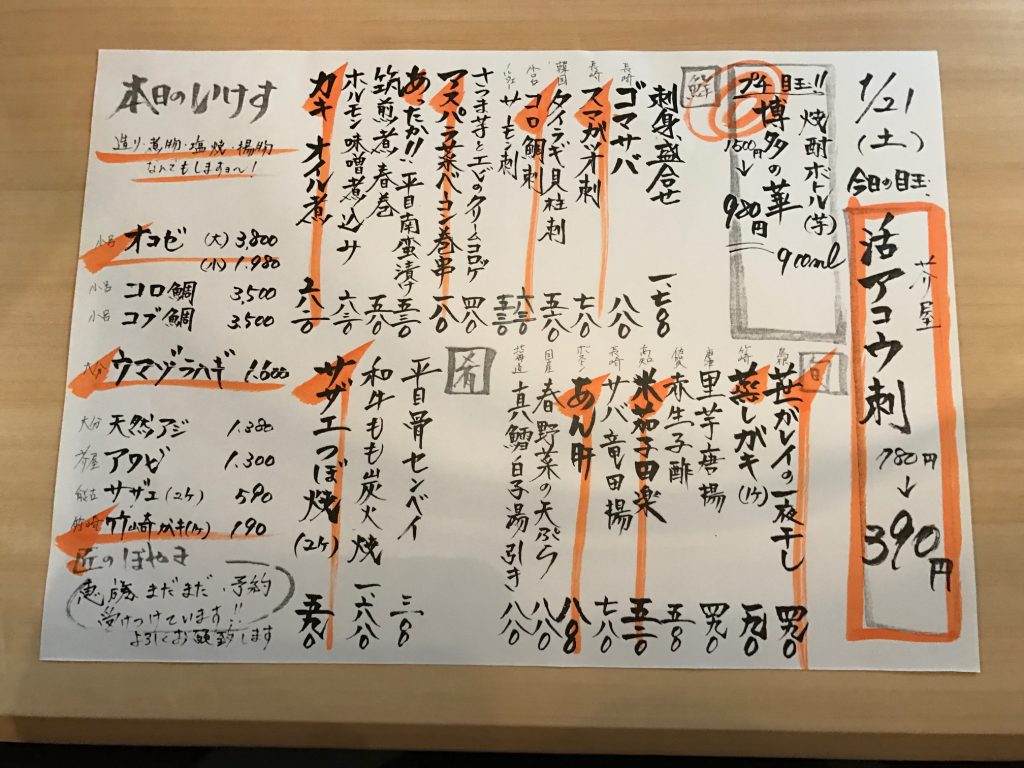 1/21
(土)
今日の目玉
芥屋
活アコウ刺
780円
↓
390円
プチ目玉!!
焼酎ボトル(芋)
博多の華
900ml
1500円
↓
980円
鮮
刺身盛合せ 一、七八〇
長崎 ゴマサバ 八八〇
長崎 スマガツオ刺 七八〇
韓国 タイラギ貝柱刺 五八〇
小呂 コロ鯛刺 六八〇
サーモン刺 五八〇
さつま芋とエビのクリームコロッケ 四八〇
アスパラ菜ベーコン巻串 一八〇
あったか!! 平目南蛮漬け 五八〇
筑前煮春巻 五八〇
ホルモン味噌煮込み 六八〇
カキオイル煮 六八〇
旬
島根 笹がレイの一夜干し 四九〇
竹崎 蒸しガキ(1ケ) 一九〇
唐津 里芋唐揚 四九〇
佐賀 赤生子酢 五八〇
高知 米茄子田楽 五八〇
長崎 サバ竜田揚 七八〇
ボストン あん肝 八八〇
国産 春野菜の天ぷら 八八〇
北海道 真鱈白子湯引き 八八〇
肴
平目骨センベイ 三八〇
和牛もも炭火焼 一、六八〇
サザエつぼ焼(2ケ) 五九〇
本日のいけす
造り・煮物・塩焼・揚物
なんでもしますョ〜!
小呂 オコゼ (大) 3,800
(小) 1.980
小呂 コロ鯛 3,500
小呂 コブ鯛 3,500
大分 ウマヅラハギ 1.600
大分 天然アジ 1.380
芥屋 アワビ 1.300
サザエ(2ケ) 590
竹崎 竹崎カキ(1ケ) 190
匠のぼやき
恵方まだまだ予約
受けつけています!!
よろしくお願い致します